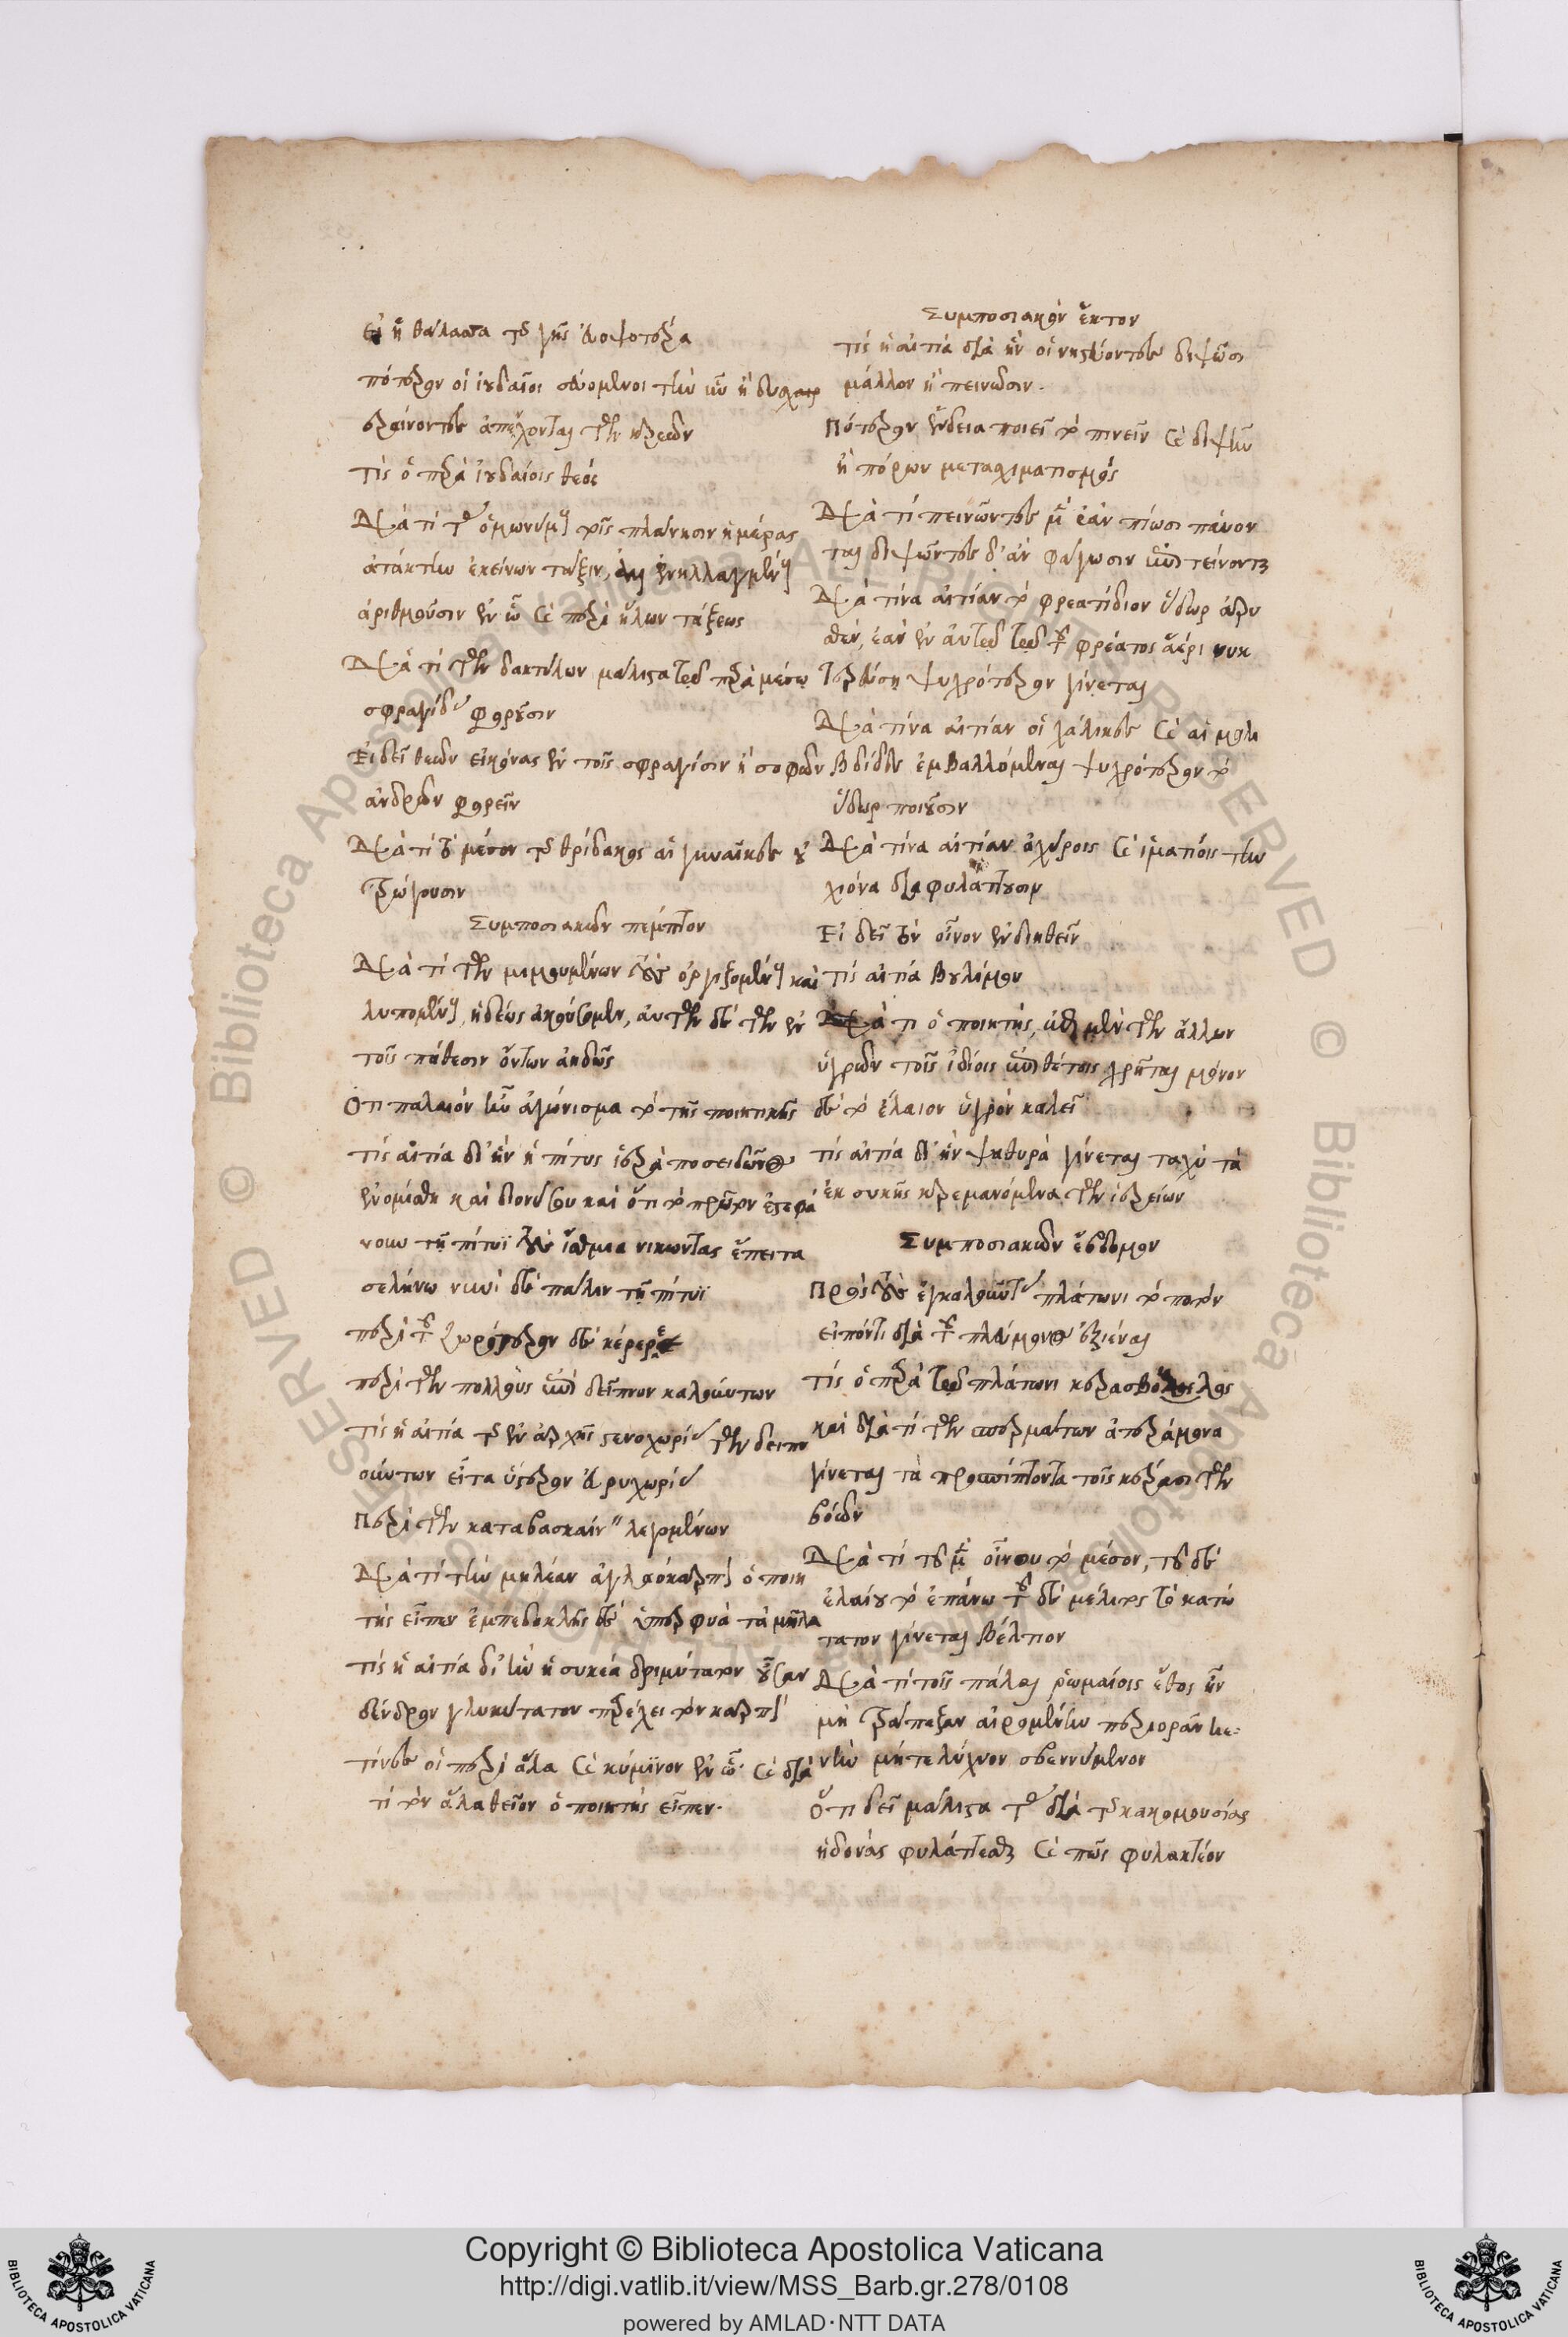 Εἰ ἡ θάλασσα τῆς γῆς εὐοψοτέρα
πότερον οἱ ἰουδαῖοι σεβόμενοι τὴν ὗν ἢ δυσχερ
ραίνοντες ἀπέχονται τῶν κρεῶν
Τίς ὁ παρὰ ἰουδαίοις θεός
Διὰ τί τὰς ὁμωνύμους τοῖς πλάνησιν ἡμέρας
οὐ κατὰ τὴν ἐκείνων τάξιν, ἀλλ' ἐνηλλαγμένως
ἀριθμοῦσιν ἐν ᾧ καὶ περὶ ἡλίου τάξεως
Διὰ τί τῶν δακτύλων μάλιστα τῷ παρὰ μέσῳ
σφραγῖδας φοροῦσιν
Εἰ δεῖ θεῶν εἰκόνας ἐν τοῖς σφραγίσιν ἢ σοφῶν
ἀνδρῶν φορεῖν
Διὰ τί τὸ μέσον τῆς θρίδακος αἱ γυναῖκες οὐ
τρώγουσιν
Συμποσιακῶν πέμπτον
Διὰ τί τῶν μιμουμένων τοὺς ὀργιζομένους καὶ
λυπουμένους, ἡδέως ἀκούομεν, αὐτῶν δὲ τῶν ἐν
τοῖς πάθεσιν ὄντων ἀηδῶς
Ὅτι παλαιὸν ἦν ἀγώνισμα τὸ τῆς ποιητικῆς
τίς αἰτία δι' ἣν ἡ πίτυς ἱερὰ ποσειδῶνος
ἐνομίσθη καὶ διονύσου καὶ ὅτι τὸ πρῶτον ἐστεφά
νουν τῇ πίτυϊ τοὺς ἴσθμια νικῶντας ἔπειτα
σελίνῳ νυνὶ δὲ πάλιν τῇ πίτυϊ
περὶ τοῦ ζωρότερον δὲ κέραιρε
περὶ τῶν πολλοὺς ἐπὶ δεῖπνον καλούντων
τίς ἡ αἰτία τῆς ἐν ἀρχῇ στενοχωρίας τῶν δειπν
ούντων εἶτα ὕστερον εὐρυχωρίας
Περὶ τῶν καταβασκαίνειν λεγομένων
Διὰ τί τὴν μηλέαν ἀγλαόκαρπον ὁ ποιη
τὴς εἶπεν ἐμπεδοκλῆς δὲ ὑπέρφυα τὰ μῆλα
τίς ἡ αἰτία δι' ἣν ἡ συκέα δριμύτατον οὖσαν
δένδρον γλυκύτατον παρέχει τὸν καρπόν
τίνες οἱ περὶ ἅλα καὶ κύμινον ἐν ᾧ καὶ διὰ
τί τὸν ἅλα θεῖον ὁ ποιητὴς εἶπεν.
Συμποσιακῶν ἕκτον
τίς ἡ αἰτία διὰ ἣν οἱ νηστεύοντες διψῶσι
μᾶλλον ἢ πεινῶσιν.
Πότερον ἔνδεια ποιεῖ τὸ πεινεῖν καὶ διψῆν
ἢ πόρων μετασχηματισμός
Διὰ τί πεινῶντες μὲν ἐὰν πίωσι παύον
ται διψῶντες δ' ἂν φάγωσιν ἐπιτείνονται
Διὰ τίνα αἰτίαν τὸ φρεατίδιον ὕδωρ ἀρυ
σθέν, ἐὰν ἐν αὐτῷ τῷ τοῦ φρέατος ἀέρι νυκ
τερεύσῃ ψυχρότερον γίνεται
Διὰ τίνα αἰτίαν οἱ χάλικες καὶ αἱ μολι
βδίδες ἐμβαλλόμεναι ψυχρότερον τὸ
ὕδωρ ποιοῦσιν
Διὰ τίνα αἰτίαν ἀχύροις καὶ ἱματίοις τὴν
χιόνα διαφυλάττουσιν
Εἰ δεῖ τὸν οἶνον ἐνδιηθεῖν
τίς αἰτία βουλίμου
Διὰ τί ὁ ποιητής, ἐπὶ μὲν τῶν ἄλλων
ὑγρῶν τοῖς ἰδίοις ἐπιθέτοις χρῆται μόνον
δὲ τὸ ἔλαιον ὑγρὸν καλεῖ
τίς αἰτία δι' ἣν ψαθυρὰ γίνεται ταχὺ τὰ
ἐκ συκῆς κρεμανόμενα τῶν ἱερείων
Συμποσιακῶν ἕβδομον
Πρὸς τοὺς ἐγκαλοῦντας πλάτωνι τὸ ποτὸν
εἰπόντι διὰ τοῦ πλεύμονος ἐξιέναι
τίς ὁ παρὰ τῷ πλάτωνι κερασβόλος
καὶ διὰ τί τῶν σπερμάτων ἀτεράμονα
γίνεται τὰ προσπίπτοντα τοῖς κέρασι τῶν
βοῶν
Διὰ τί τοῦ μὲν οἴνου τὸ μέσον, τοῦ δὲ
ἐλαίου τὸ ἐπάνω τοῦ δὲ μέλιτος τὸ κατώ
τατον γίνεται βέλτιον
Διὰ τί τοῖς πάλαι ῥωμαίοις ἔθος ἦν
μὴ τράπεζαν αἰρομένην περιορᾶν κε-
νὴν μήτε λύχνον σβεννύμενον
Ὅτι δεῖ μάλιστα τὰς διὰ τῆς κακομουσίας
ἡδονὰς φυλάττεσθαι καὶ πῶς φυλακτέον
Copyright © Biblioteca Apostolica Vaticana
http://digi.vatlib.it/view/MSS_Barb.gr.278/0108
powered by AMLAD·NTT DATA